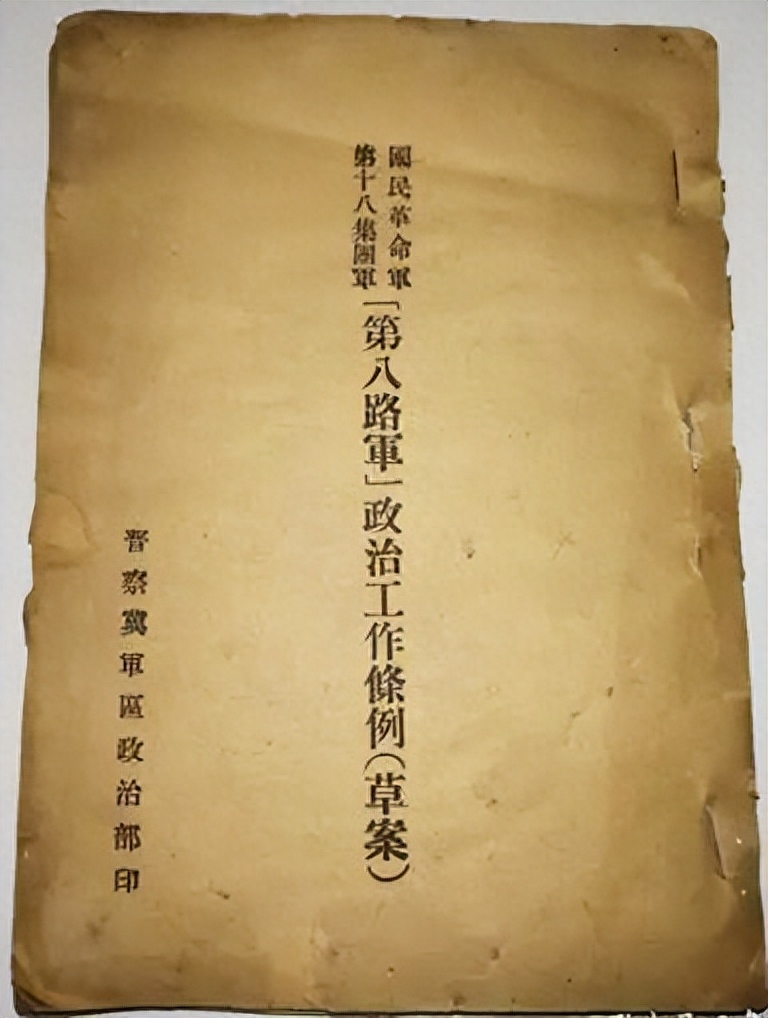 國民革命軍
第十八集團軍
「第八路軍」政治工作條例(草案)
晋察冀軍區政治部印